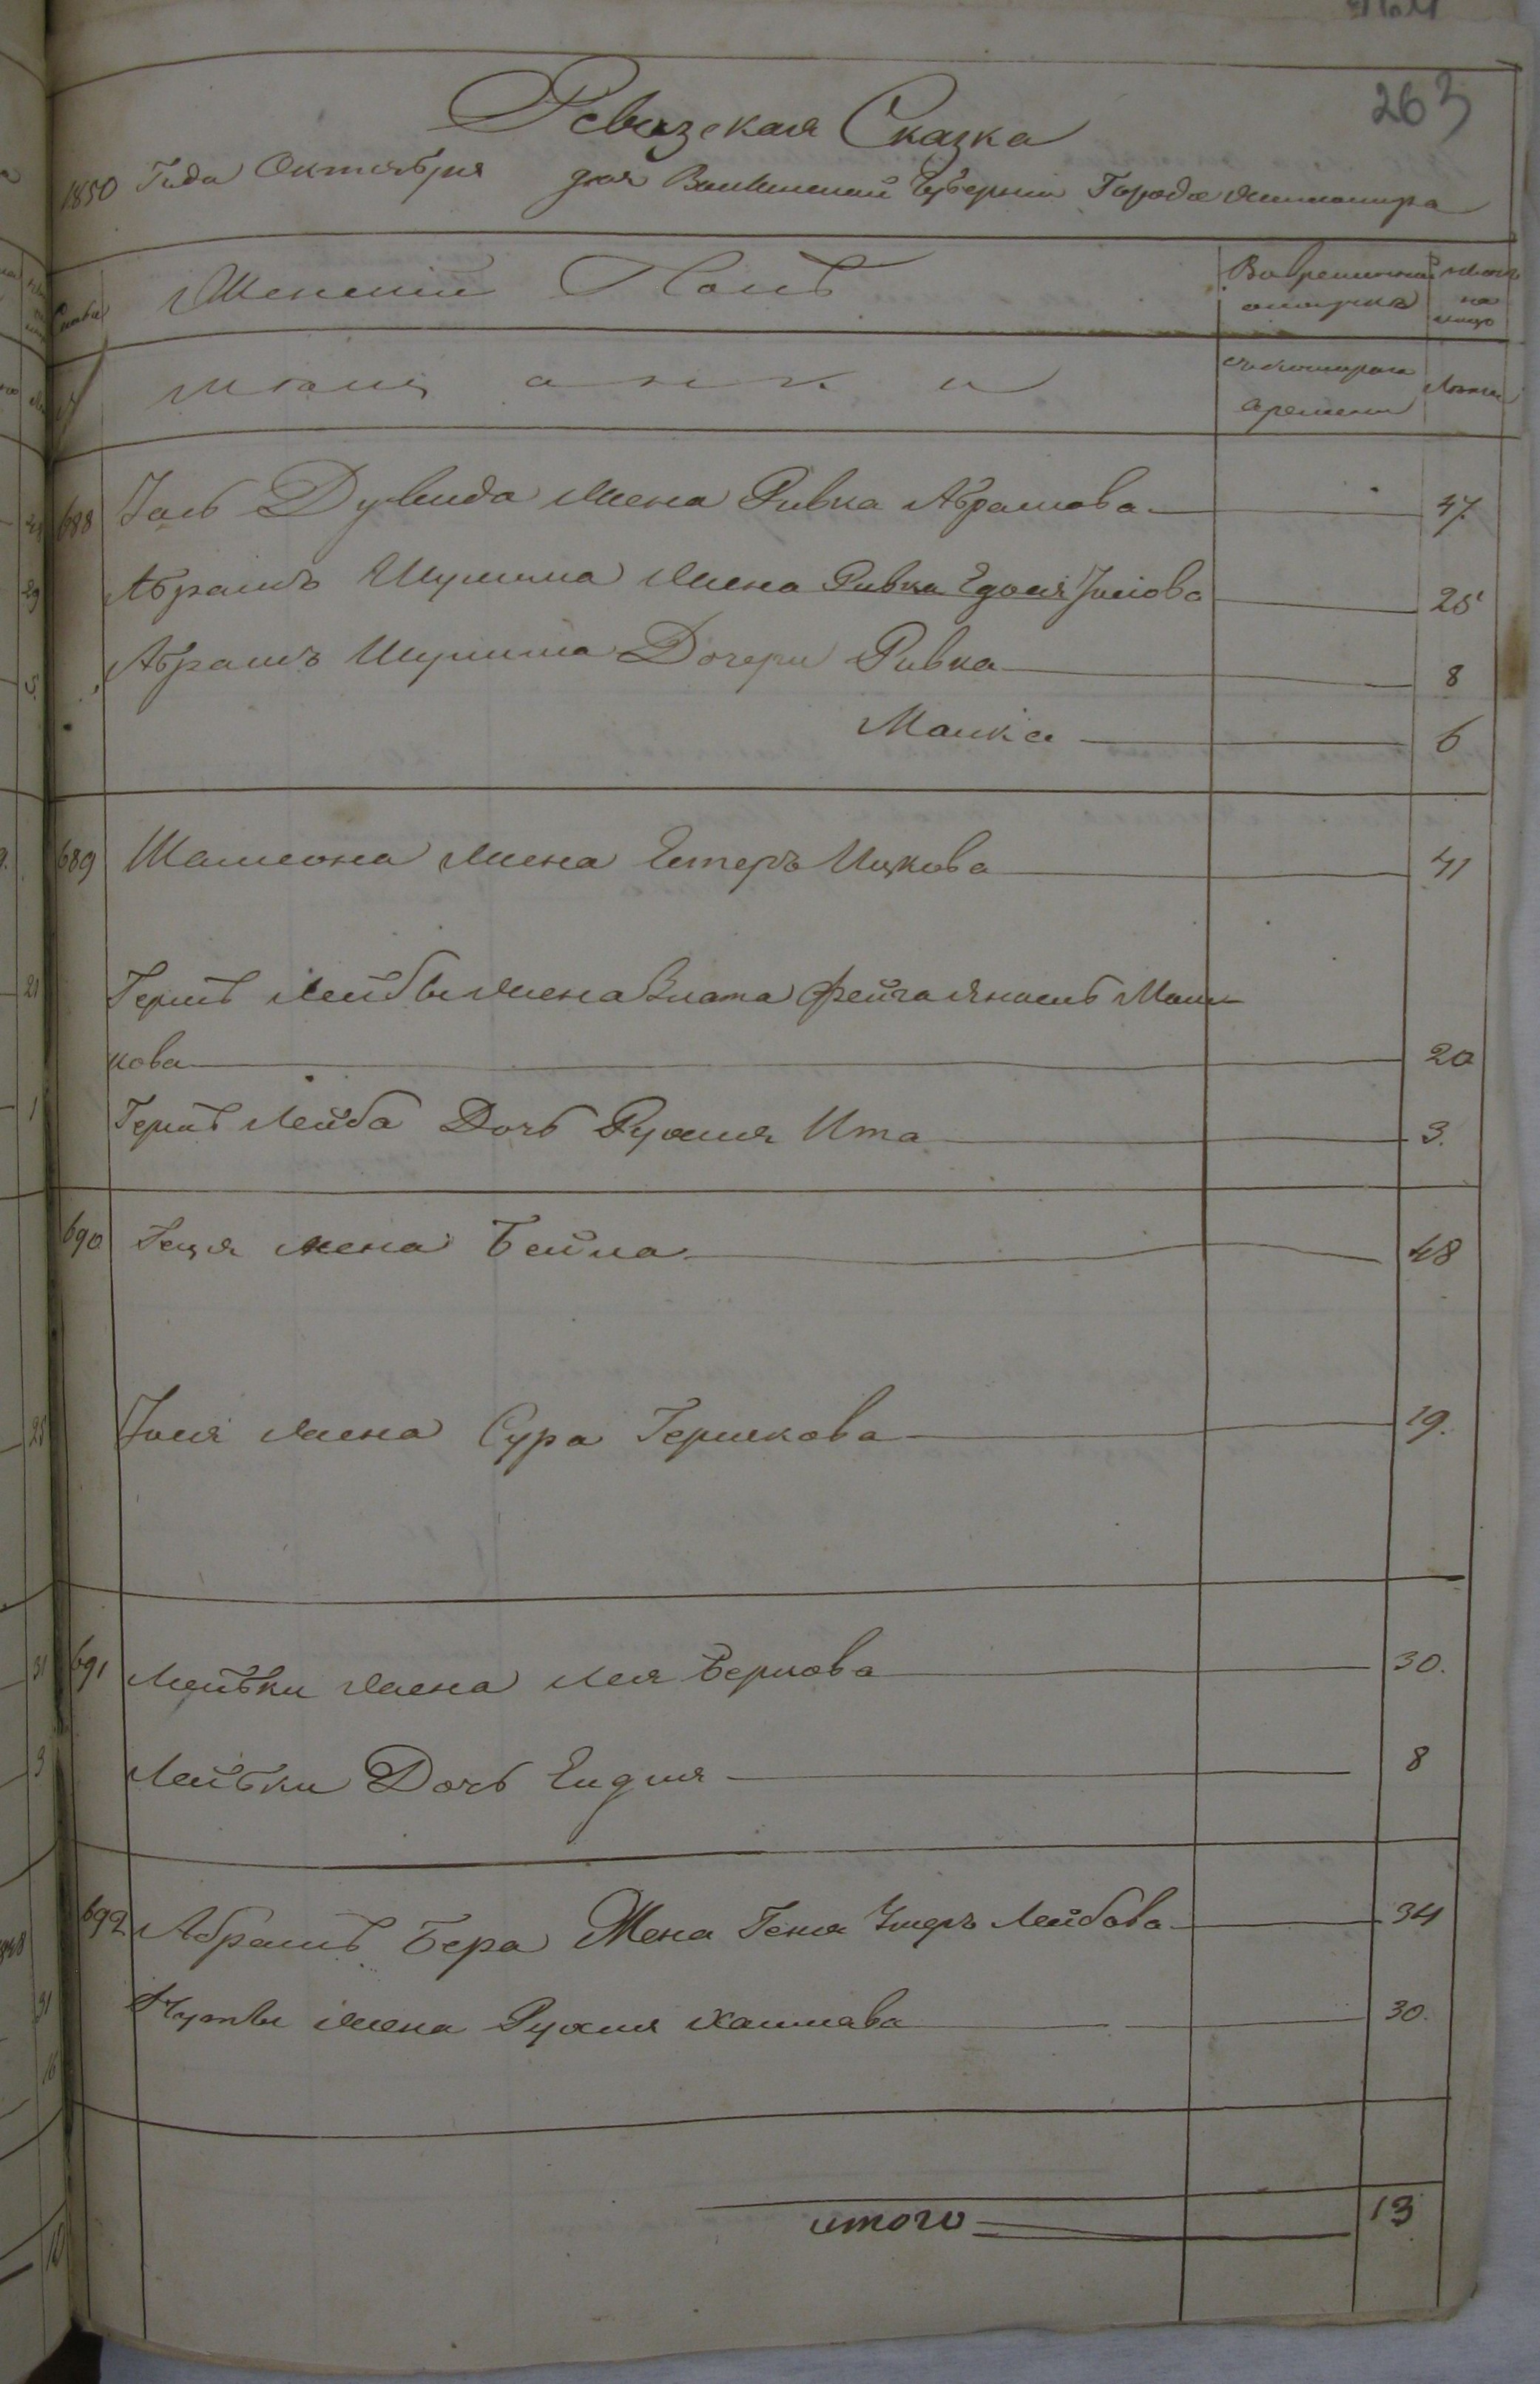 263
Ревизская Сказка
1850 Года Октября дня Волынской Губернии Города Житомира
Семьи Женский Полъ Во временной отлучке сколько на лицо
№ мещанки съ котораго времени Лета
688 Іось Дувида Жена Ривка Абрамова 47.
Абрамъ Шулима Жена Ривка Едося Іосіова 25
Абрамъ Шулима Дочери Ривка 8
Малка 6
689 Шалиона Жена Естеръ Ицкова 41
Гершъ Лейбы Жена Злата Фейга Мош-
кова 20
Гершъ Лейба Дочь Рухля Ита 3.
690 Геця жена Бейла 48
Іося Жена Сура Гершкова 19.
691 Лейбки Жена Лея Беркова 30.
Лейбки Дочь Ендля 8
692 Абрамъ Бера Жена Геня Эстеръ Лейбова 34
Нуты Жена Рухля Хаимова 30.
итого 13